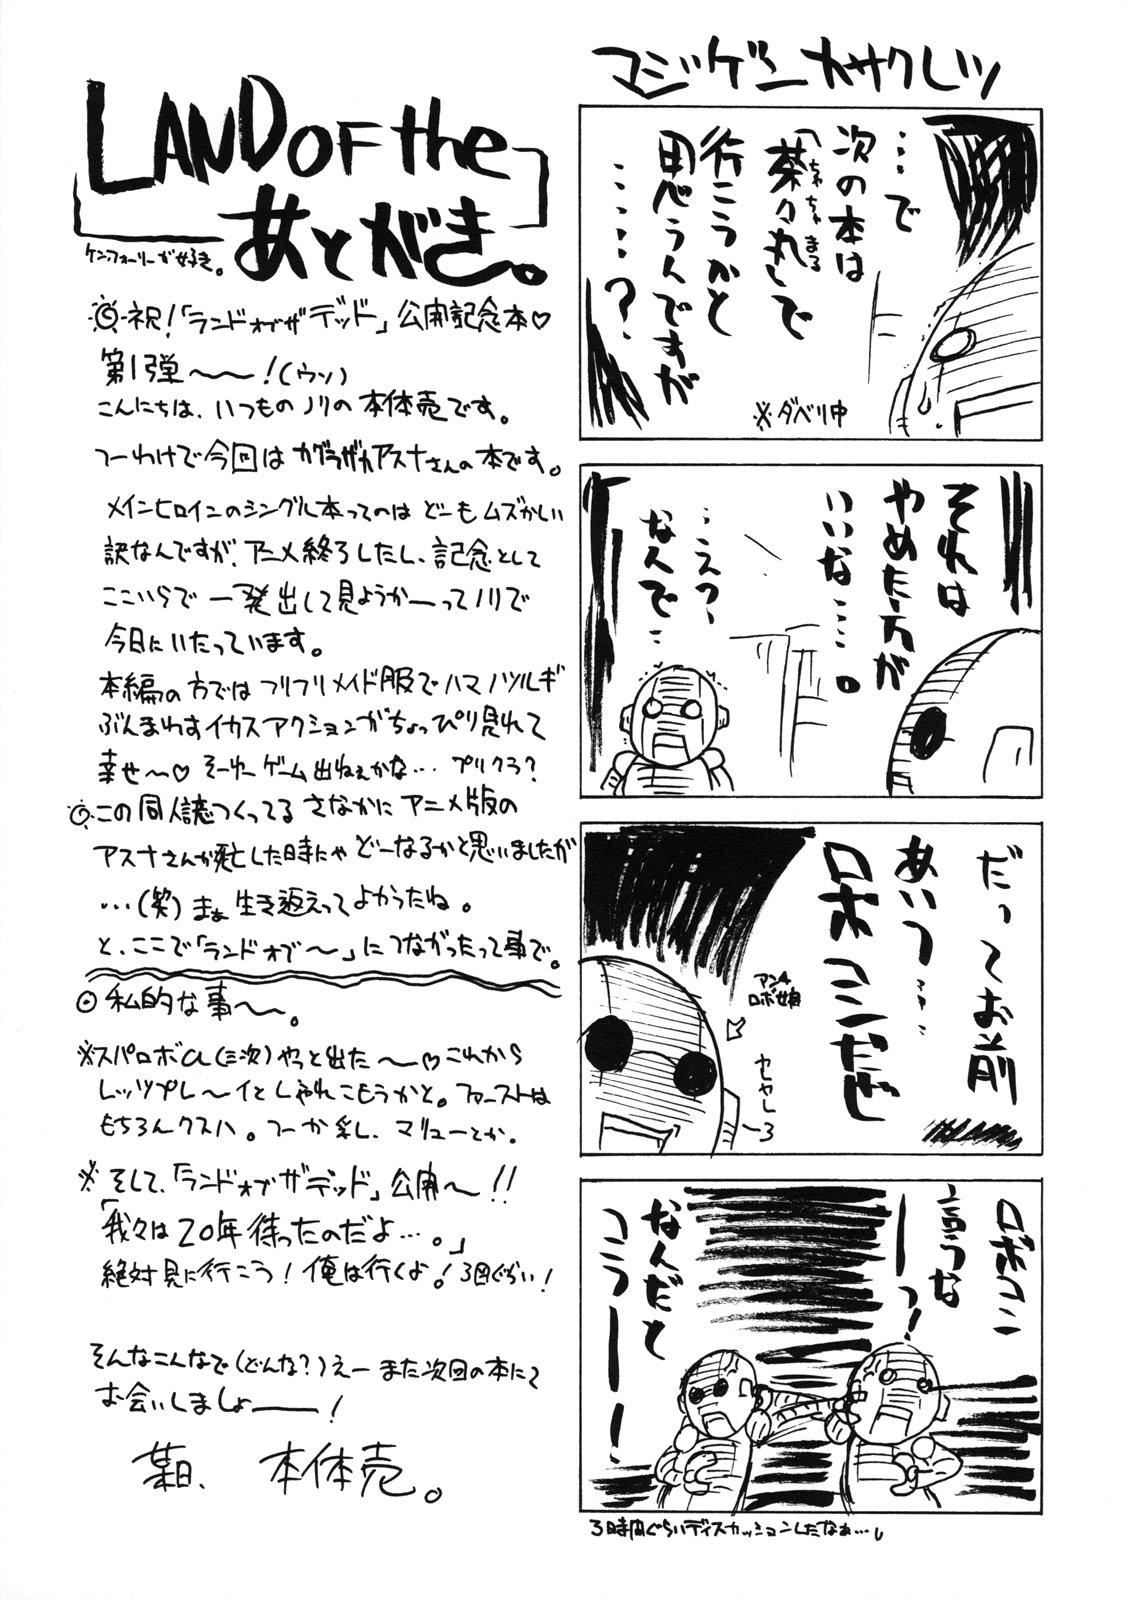 LAND OF the
あとがき。
ケン・フォーリーが好き。
◎祝!「ランドオブザデッド」公開記念本♡
第1弾〜〜!(ウソ)
こんにちは、いつものノリの本体売です。
つーわけで今回はカグラザカアスナさんの本です。
メインヒロインのシングル本ってのはどーもムズかしい
訳なんですが、アニメ終了したし、記念として
ここいらで一発出して見ようかーってノリで
今日にいたっています。
本編の方ではフリフリメイド服でハマノツルギ
ぶんまわすイカスアクションがちょっぴり見れて
幸せ〜♡ そーゆーゲーム出ねぇかな… プリクラ?
◎この同人誌つくってるさなかにアニメ版の
アスナさんが死亡した時にゃどーなるかと思いましたが
…(笑)まぁ生き返えってよかったね。
と、ここで「ランドオブ〜」につながったって事で。
◎私的な事〜。
※スパロボα(三次)やっと出た〜♡これから
レッツプレ〜イとしゃれこもうかと。ファーストは
もちろんクスハ。つーか乳、マリューとか。
※そして、「ランドオブザデッド」公開〜!!
「我々は20年待ったのだよ…。」
絶対見に行こう!俺は行くよ!3回ぐらい!
そんなこんなで(どんな?)えーまた次回の本にて
お会いしましょ──!
某日、 本体売。
マジゲンカサクレツ
…で
次の本は
「茶々丸」で
ちゃちゃまる
行こうかと
思うんですが
……?
※ダベリ中
それは
やめた方が
いいな…。
…えっ、
なんで…
だってお前
あいつ…
ロボコンだぜ
アンチ
ロボ娘
ロボコン
言うな
──っ!
なんだと
コラ──!
3時間ぐらいディスカッションしたなぁ…。